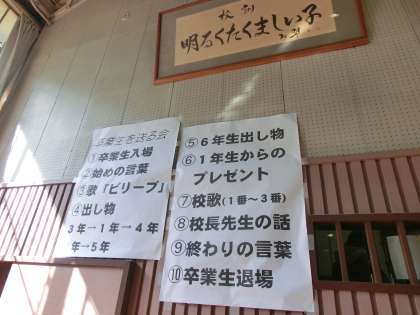 校訓
明るくたくましい子
卒業生を送る会
①卒業生入場
②始めの言葉
③歌「ビリーブ」
④出し物
3年→1年→4年
年→5年
⑤6年生出し物
⑥1年生からの
プレゼント
⑦校歌(1番～3番)
⑧校長先生の話
⑨終わりの言葉
⑩卒業生退場